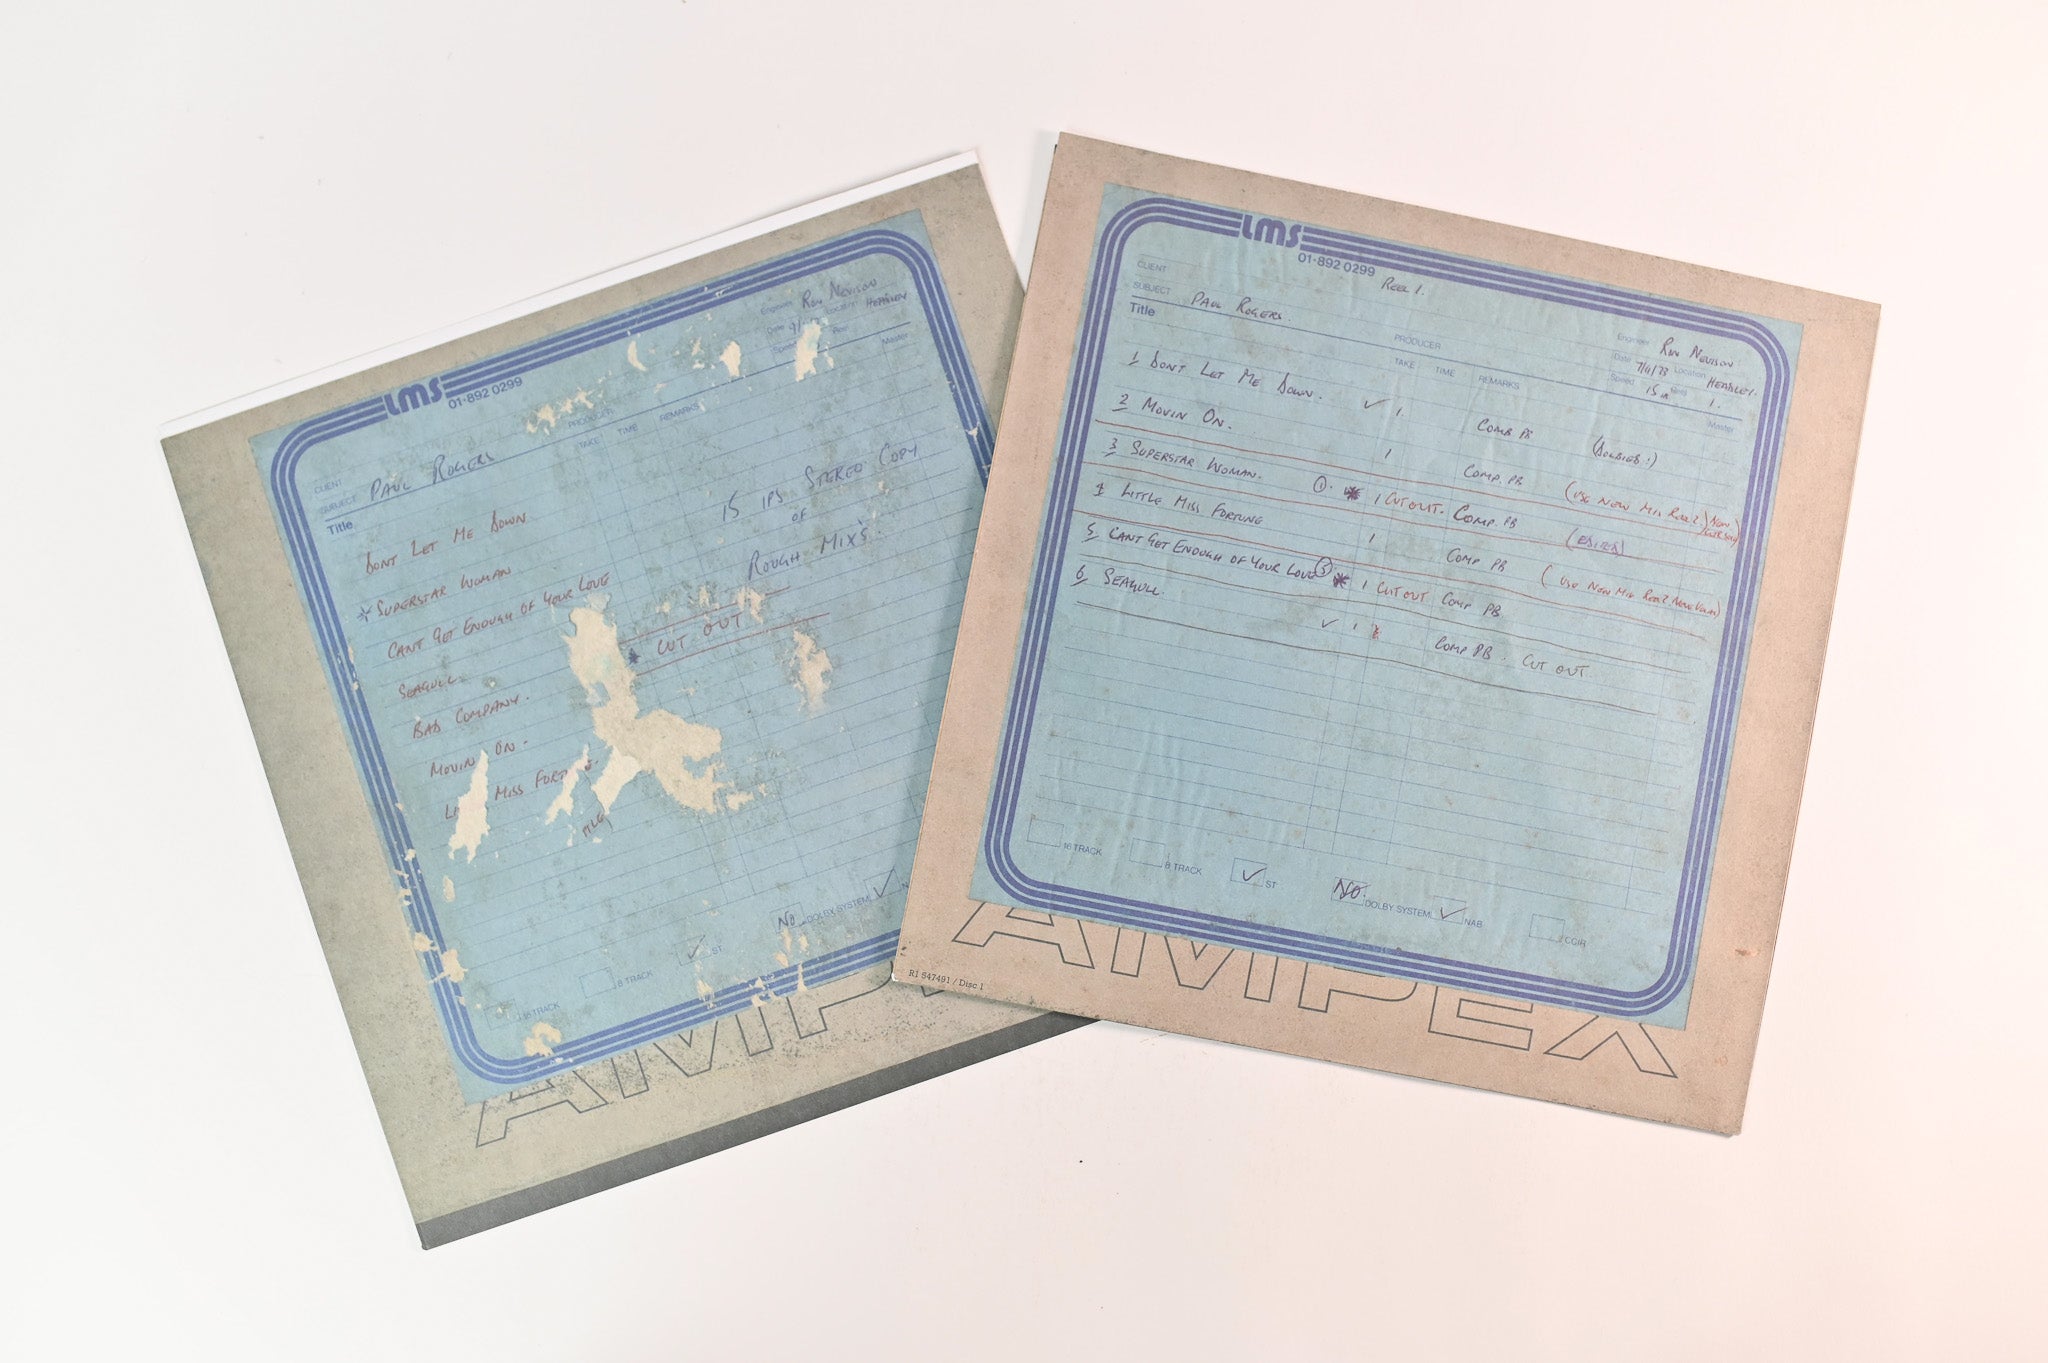 LMS
01-892 0299
Engineer Ron Nevison
Date Location Headley
Speed Reel
Master
CLIENT
SUBJECT PAUL ROGERS
PRODUCER
Title TAKE TIME REMARKS
15 IPS STEREO COPY
OF
ROUGH MIX'S
DONT LET ME DOWN
* SUPERSTAR WOMAN
CANT GET ENOUGH OF YOUR LOVE
* CUT OUT
SEAGULL
BAD COMPANY.
MOVIN ON.
MISS
16 TRACK 8 TRACK ✓ ST NO DOLBY SYSTEM ✓
AMP
LMS
01-892 0299
REEL 1.
CLIENT
SUBJECT PAUL ROGERS.
PRODUCER
Engineer RON NEVISON
Date 7/11/73 Location HEADLEY.
Speed 15 Reel 1.
Title TAKE TIME REMARKS Master
1 DONT LET ME DOWN. ✓ 1. COMP PB (DOLBIES!)
2 MOVIN ON. 1 COMP. PB (USE NEW MIX REEL 2)
3 SUPERSTAR WOMAN. 1. * 1 CUT OUT. COMP. PB (EDITED)
4 LITTLE MISS FORTUNE 1 COMP PB (USE NEW MIX REEL 2
5 CANT GET ENOUGH OF YOUR LOVE * 1 CUT OUT COMP PB.
6 SEAGULL. ✓ 1 COMP PB. CUT OUT
16 TRACK 8 TRACK ✓ ST NO. DOLBY SYSTEM ✓ NAB CCIR
AMPEX
R1 547491 / Disc 1